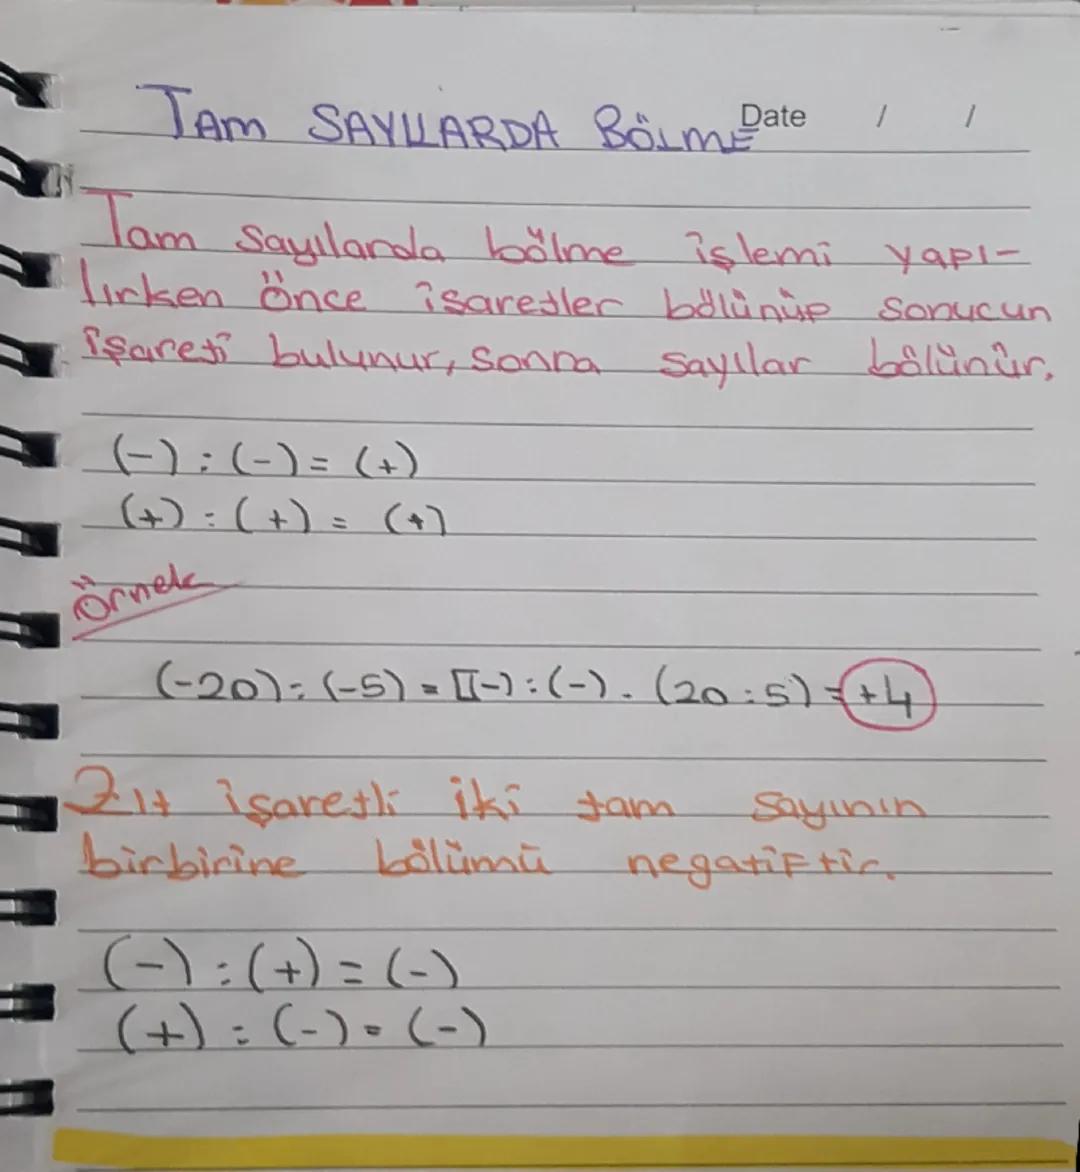 TAM SAYILARDA BÖLME Date / /
Tam sayılarda bölme işlemi yapı-
lırken önce işaretler bölünüp sonucun
işareti bulunur, sonra sayılar bölünür.
(-) : (-) = (+)
(+) : (+) = (+)
Örnek
(-20) : (-5) = [(-) : (-) . (20 : 5) = +4
Zıt işaretli iki tam sayının
birbirine bölümü negatiftir.
(-) : (+) = (-)
(+) : (-) = (-)